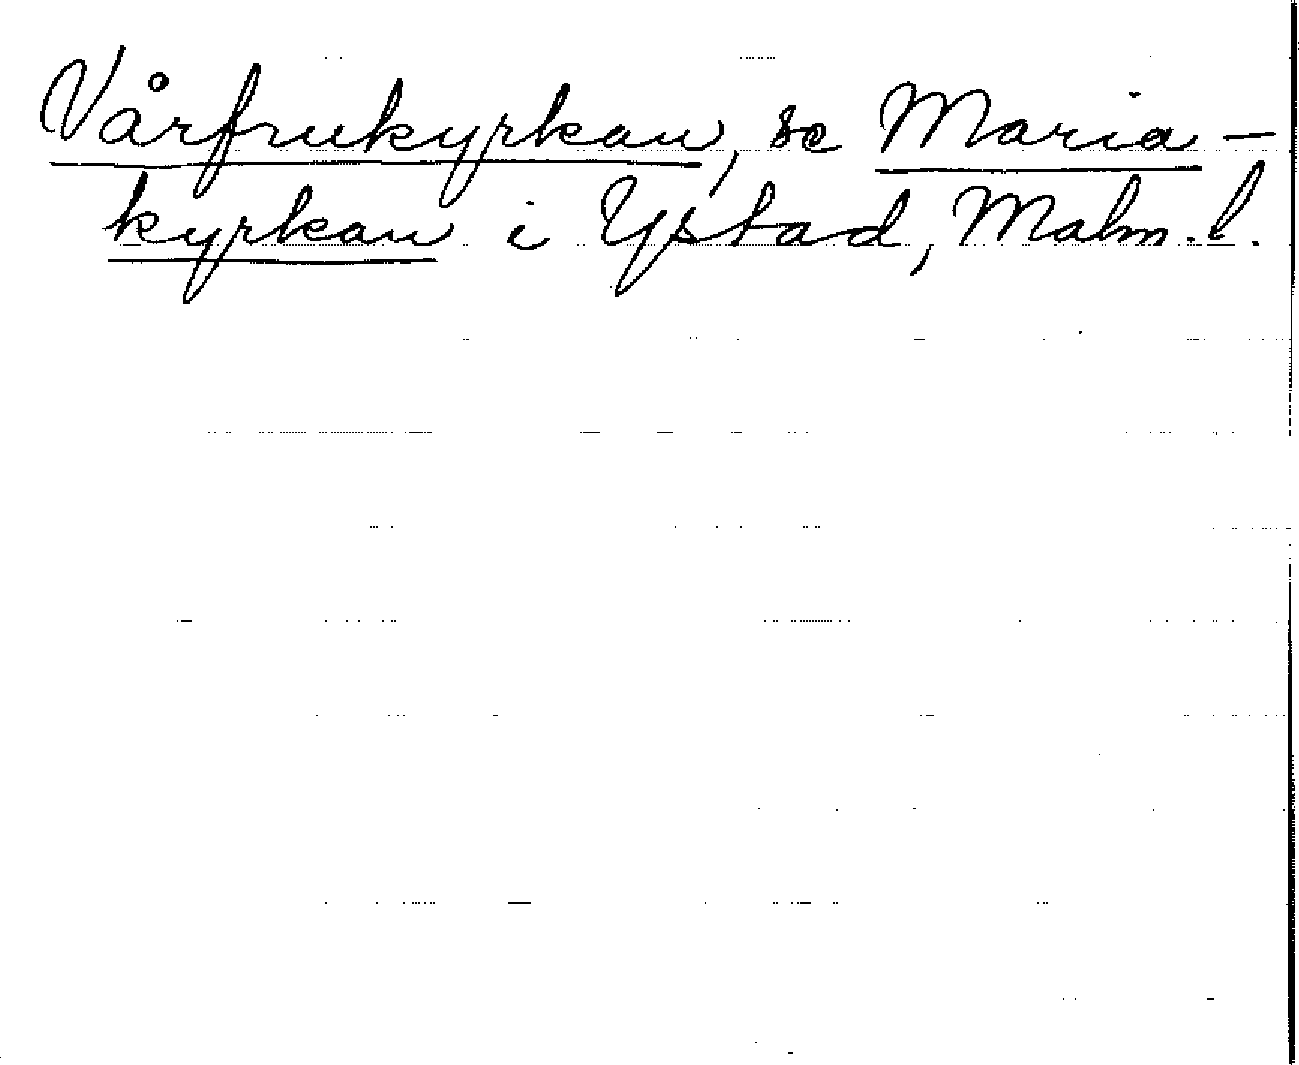 Vårfrukyrkan, se Maria-
kyrkan i Ystad, Malm. l.